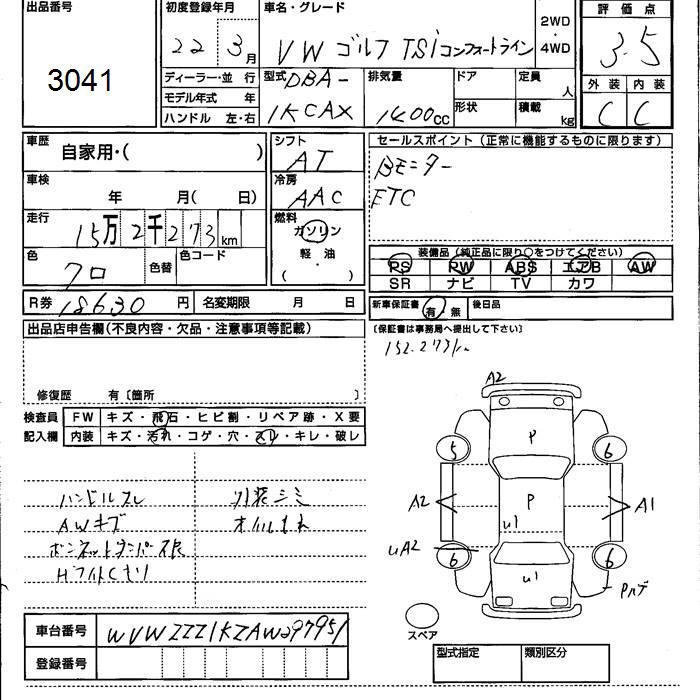 出品番号
3041
初度登録年月
22 3月
車名・グレード
VW ゴルフ TSi コンフォートライン
2WD
・
4WD
評価点
3.5
ディーラー・並 行
モデル年式 年
ハンドル 左・右
型式 DBA-
1KCAX
排気量
1400cc
ドア
形状
定員 人
積載 kg
外装 内装
C C
車歴
自家用・( )
シフト
AT
セールスポイント (正常に機能するものに限ります)
Bモニター
ETC
車検
年 月( 日)
冷房
AAC
走行
15万2千273km
燃料
ガソリン
軽・油
( )
色
クロ
色替
色コード
装備品 (純正品に限り○をつけてください)
PS PW ABS エアB AW
SR ナビ TV カワ
R券 18630 円
名変期限 月 日
新車保証書 有・無
後日品
出品店申告欄(不良内容・欠品・注意事項等記載)
(保証書は事務局へ提出して下さい)
152.273km
修復歴 有〔箇所 〕
検査員
記入欄
FW キズ・飛石・ヒビ割・リペア跡・X要
内装 キズ・汚れ・コゲ・穴・スレ・キレ・破レ
ハンドルスレ
外装シミ
AWキズ
オイルもれ
ボンネットダンパー不良
Hライトくもり
A2
P
5 6
A2 P A1
U1
UA2
6 6
U1
Pハゲ
スペア
車台番号 WVWZZZ1KZAW297951
登録番号
型式指定 類別区分